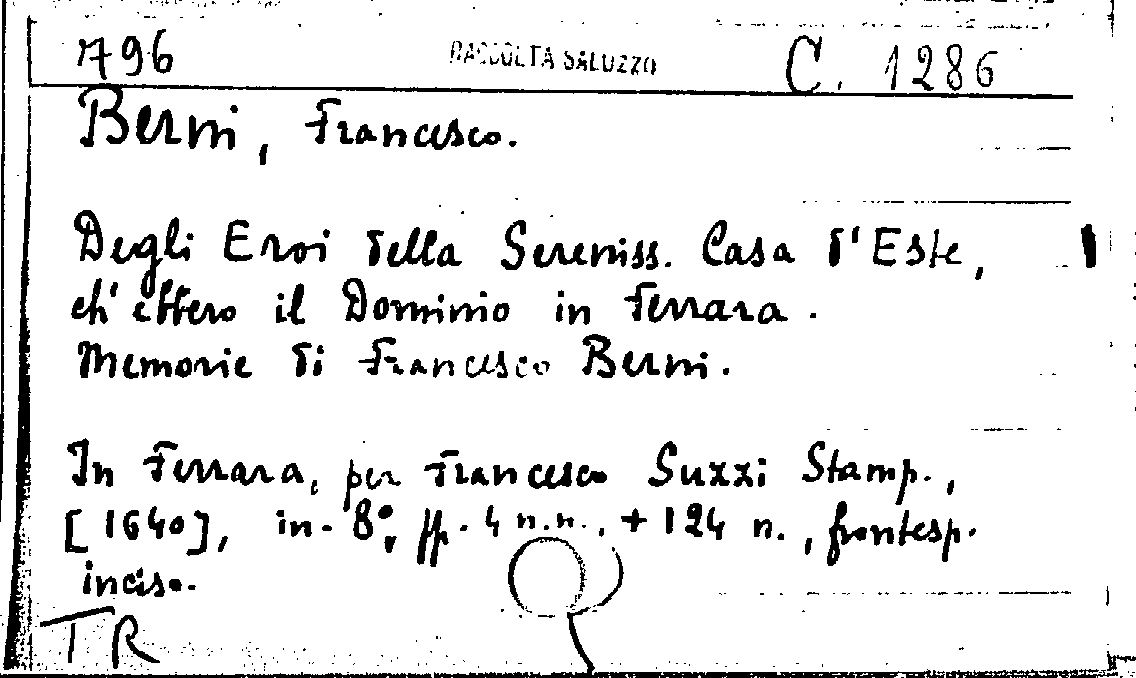 796 RACCOLTA SALUZZO C. 1286
Berni, Francesco.
Degli Eroi della Sereniss. Casa d'Este,
ch'ebbero il Dominio in Ferrara.
Memorie di Francesco Berni.
In Ferrara, per Francesco Suzzi Stamp.,
[1640], in-8°, pp. 4 n.n., + 124 n., frontesp.
inciso.
TR